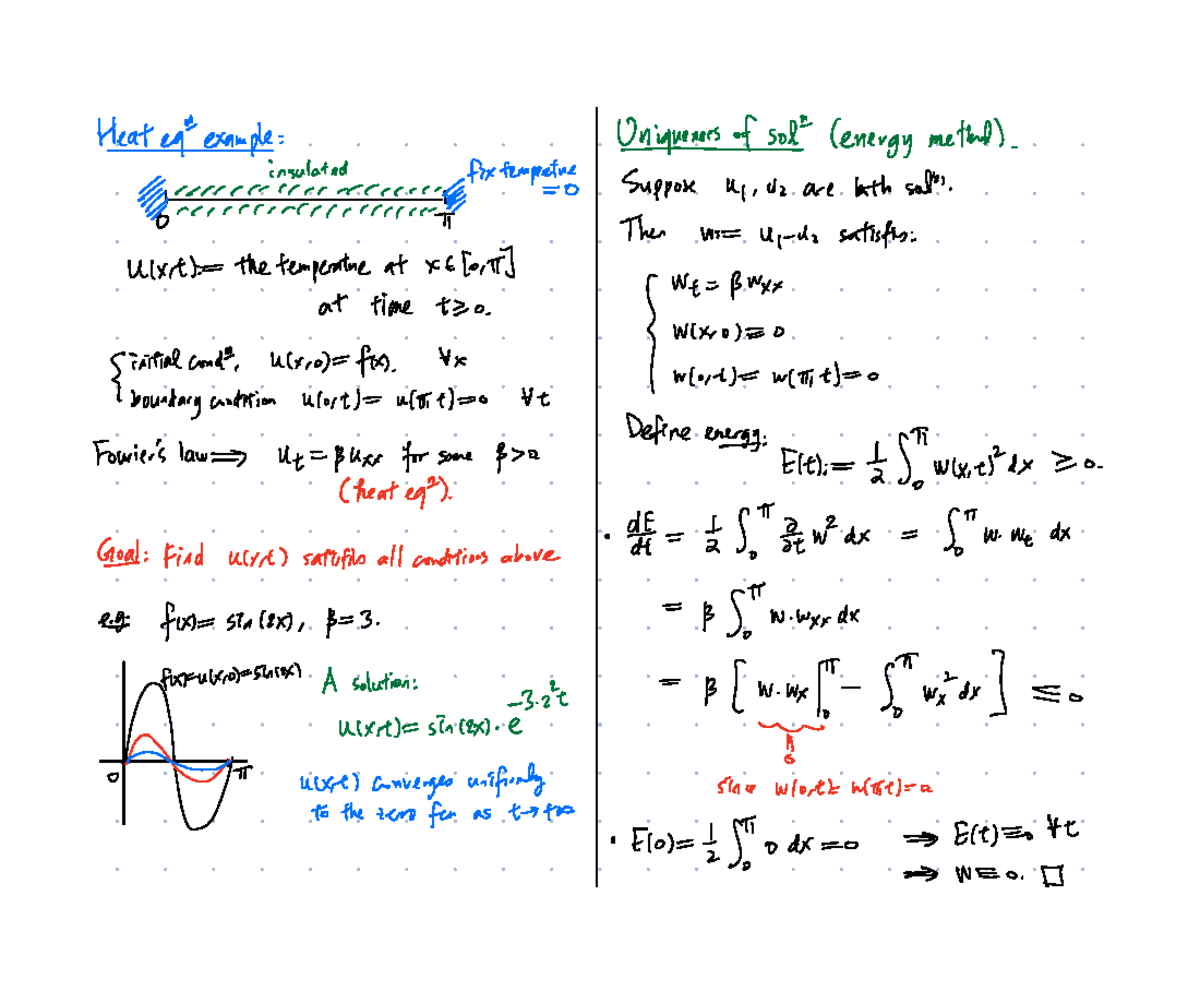 Heat eqⁿ example:
insulated
fix temperature
= 0
0 π
u(x,t) := the temperature at x ∈ [0,π]
at time t ≥ 0.
{ initial condⁿ. u(x,0) = f(x). ∀x
boundary condition u(0,t) = u(π,t) = 0 ∀t
Fourier's law ⟹ u_t = β u_xx for some β > 0
(heat eqⁿ).
Goal: Find u(x,t) satisfies all conditions above
e.g: f(x) = sin(2x), β = 3.
f(x)=u(x,0)=sin(2x)
A solution:
u(x,t) = sin(2x) · e^{-3·2²t}
0 π
u(x,t) converges uniformly
to the zero fcn as t → +∞
Uniqueness of solⁿ (energy method).
Suppose u₁, u₂ are both solⁿ⁽ˢ⁾.
Then w := u₁ - u₂ satisfies:
{ w_t = β w_xx
w(x,0) ≡ 0
w(0,t) = w(π,t) = 0
Define energy:
E(t) := 1/2 ∫₀^π w(x,t)² dx ≥ 0.
• dE/dt = 1/2 ∫₀^π ∂/∂t w² dx = ∫₀^π w · w_t dx
= β ∫₀^π w · w_xx dx
= β [ w · w_x |₀^π - ∫₀^π w_x² dx ] ≤ 0
0
since w(0,t) = w(π,t) = 0
• E(0) = 1/2 ∫₀^π 0 dx = 0 ⟹ E(t) ≡ 0 ∀t
⟹ w ≡ 0. □